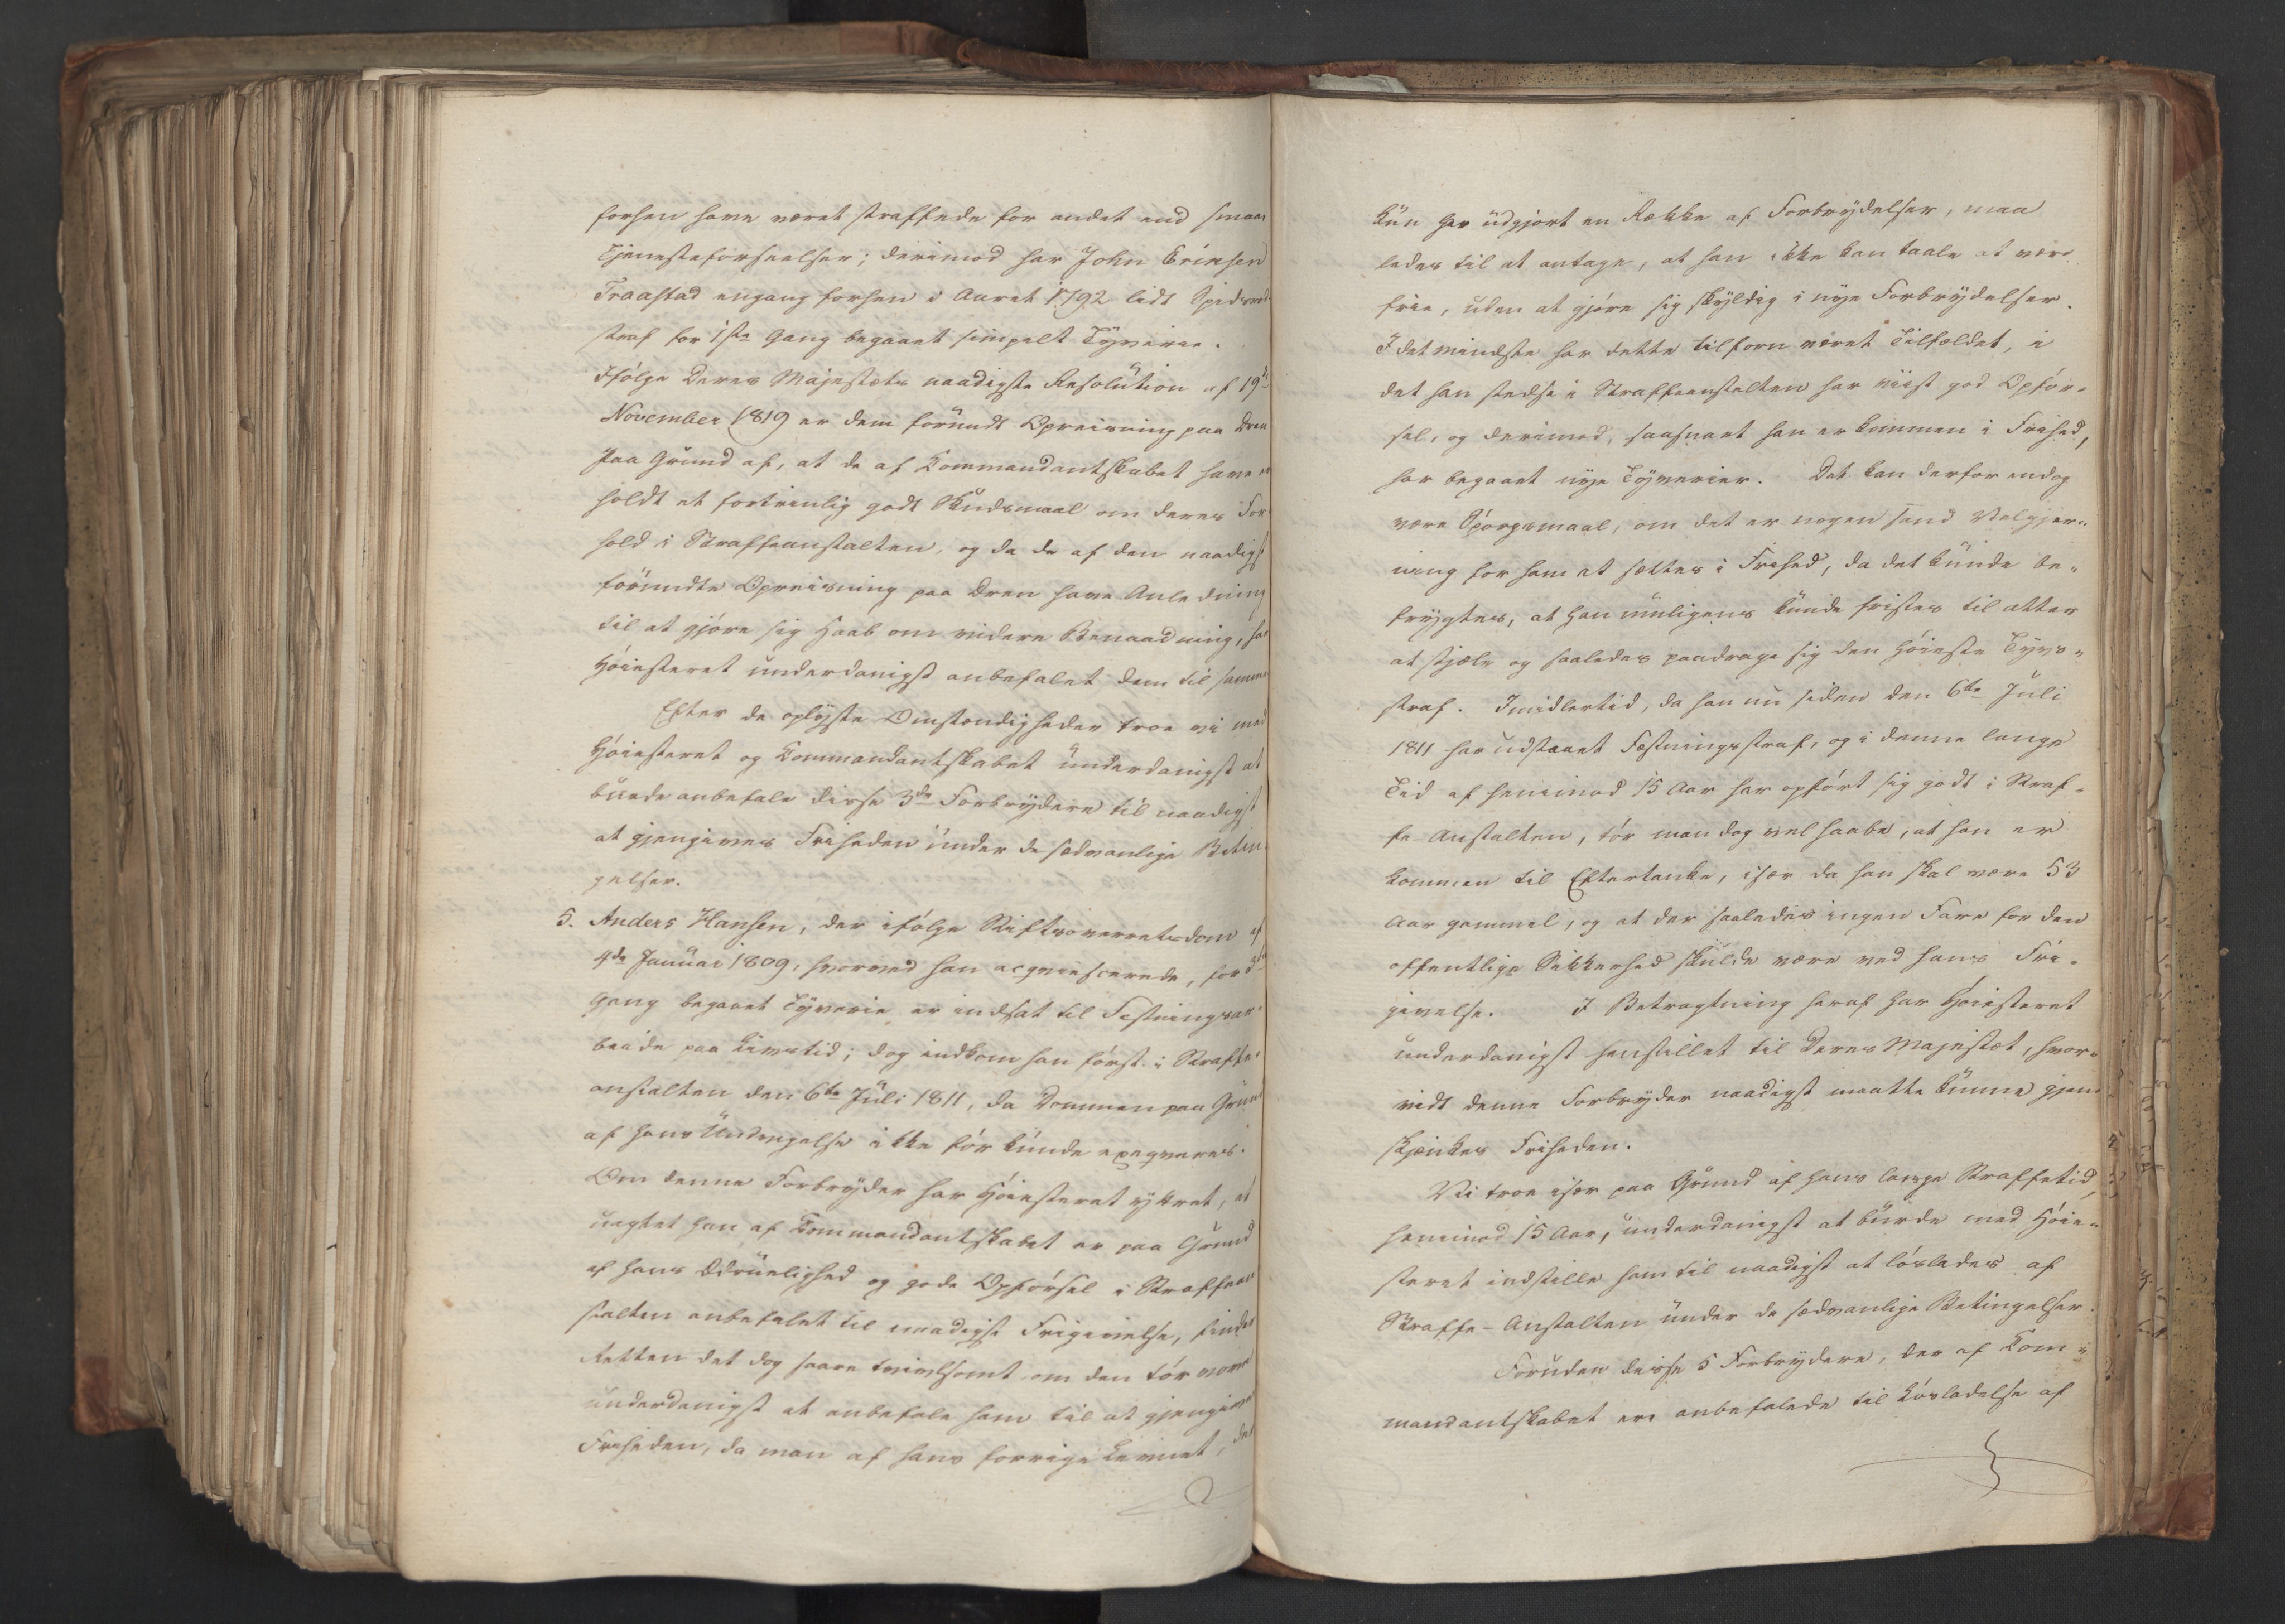 forhen have været straffede for andet end smaae
Tjenesteforseelser; derimod har John Erinsen
Traastad engang forhen i Aaret 1792 lidt Spidsrod-
straf for 1ste Gang begaaet simpelt Tyverie.
Ifølge Deres Majestæts naadigste Resolution af 19de
November 1819 er dem forundt Opreisning paa Æren
Paa Grund af, at de af Kommandantskabet have er-
holdt et fortrinlig godt Skudsmaal om deres For-
hold i Straffeanstalten, og da de af den naadigst
forundte Opreisning paa Æren have Anledning
til at gjøre sig Haab om videre Benaadning, har
Høiesteret underdanigst anbefalet dem til samme
Efter de oplyste Omstændigheder troe vi med
Høiesteret og Kommandantskabet underdanigst at
burde anbefale disse 3de Forbrydere til naadigst
at gjengives Friheden under de sædvanlige Betin-
gelser.
5. Anders Hansen, der ifølge Stiftsoverretsdom af
4de Januar 1809, hvorved han acqviescerede, for 3die
Gang begaaet Tyverie er indsat til Fæstningsar-
beide paa Livstid; dog indkom han først i Straffe-
anstalten den 6te Juli 1811, da Dommen paa Grund
af hans Undvigelse ikke før kunde exeqveres.
Om denne Forbryder har Høiesteret yttret, at
uagtet han af Kommandantskabet er paa Grund
af hans Ædruelighed og gode Opførsel i Straffean-
stalten anbefalet til naadigst Frigivelse, finder
Retten det dog saare tvivlsomt om den tør vove
underdanigst at anbefale ham til at gjengives
Friheden, da man af hans forrige Levnet, der
kun har udgjort en Række af Forbrydelser, maa
ledes til at antage, at han ikke kan taale at være
frie, uden at gjøre sig skyldig i nye Forbrydelser.
I det mindste har dette tilforn været Tilfældet, i
det han stedse i Straffeanstalten har viist god Opfør-
sel, og derimod, saasnart han er kommen i Frihed,
har begaaet nye Tyverier. Det kan derfor endog
være Spørgsmaal, om det er nogen sand Velgjer-
ning for ham at sættes i Frihed, da det kunde be-
frygtes, at han muligens kunde fristes til atter
at stjæle og saaledes paadrage sig den høieste Tyvs-
straf. Imidlertid, da han nu siden den 6te Juli
1811 har udstaaet Fæstningsstraf, og i denne lange
Tid af henimod 15 Aar har opført sig godt i Straf-
fe-Anstalten, tør man dog vel haabe, at han er
kommen til Eftertanke, især da han skal være 53
Aar gammel, og at der saaledes ingen Fare for den
offentlige Sikkerhed skulde være ved hans Fri-
givelse. I Betragtning heraf har Høiesteret
underdanigst henstillet til Deres Majestæt, hvor-
vidt denne Forbryder naadigst maatte kunne gjen-
skjænkes Friheden.
Vi troe især paa Grund af hans lange Straffetid,
henimod 15 Aar, underdanigst at burde med Høie-
steret indstille ham til naadigst at løslades af
Straffe-Anstalten under de sædvanlige Betingelser.
Foruden disse 5 Forbrydere, der af Kom-
mandantskabet ere anbefalede til Løsladelse af